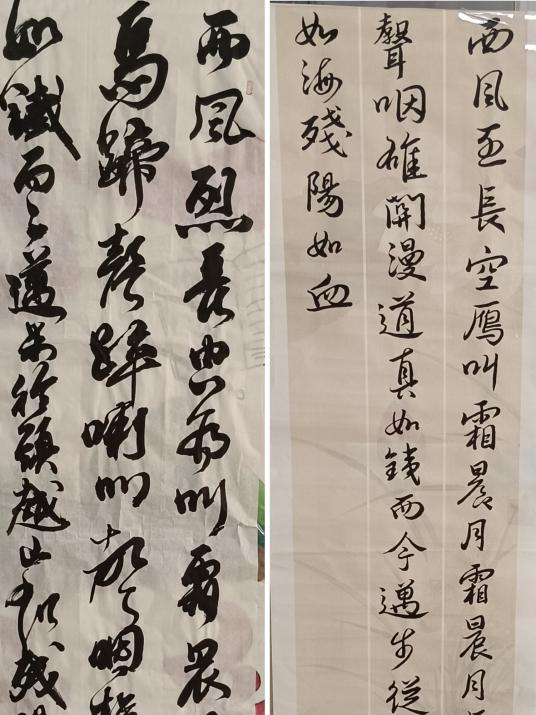 西風烈長空雁叫霜晨
馬蹄聲碎喇叭聲咽
如鐵而今邁步從頭越山如殘
西風長空雁叫霜晨月霜晨月
聲咽雄關漫道真如鐵而今邁步從
如海殘陽如血